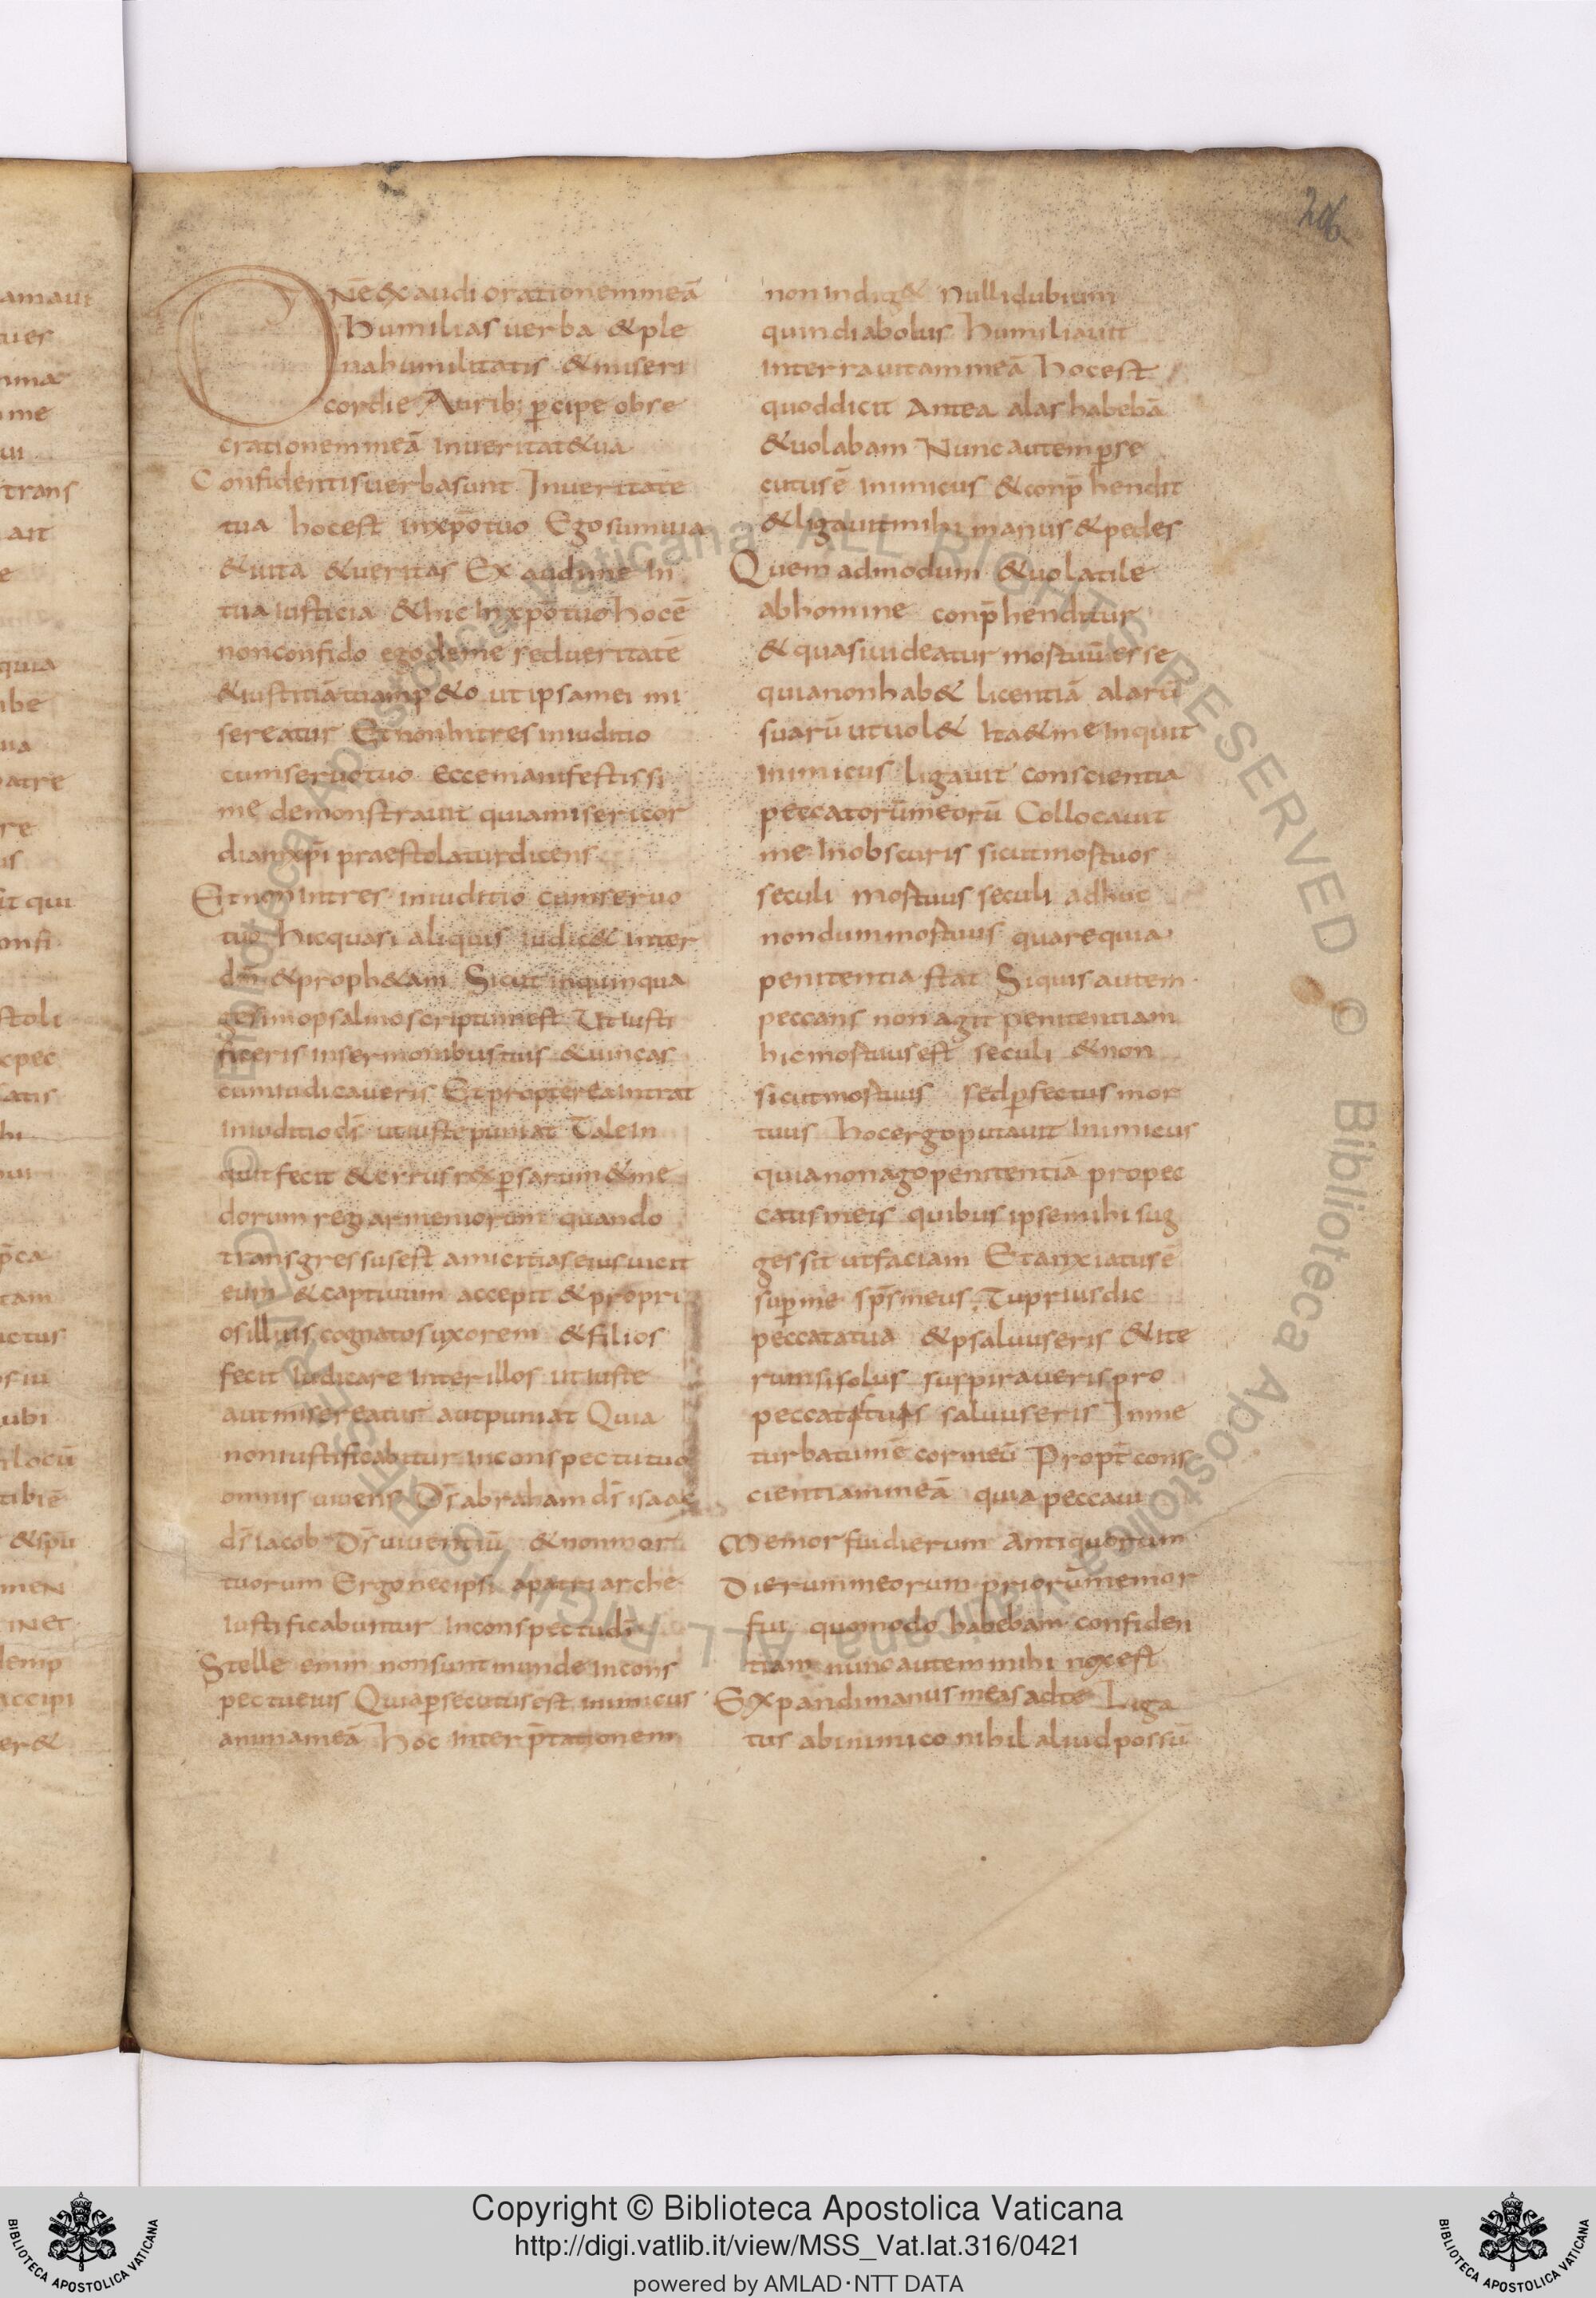 206
DNē exaudi orationem meā
Humilias uerba & ple
na humilitatis & miseri
cordie Aurib; p̄cipe obse
crationem meā in ueritat& ua
Confidentis uerba sunt In ueritate
tua hoc est in xp̄o tuo Ego sum uia
& uita & ueritas Exaudi me In
tua iusticia & hic In xp̄o tuo hoc ē
non confido ego de me sed ueritatē
& iustitiā tuam p&o ut ipsa mei mi
sereatur Et non Intres in iuditio
cum seruo tuo ecce manifestissi
me demonstrauit quia misericor
diam xp̄i praestolatur dicens
Et non intres in iuditio cum seruo
tuo hic quasi aliquis iudic& inter
dm̄ & proph&am Sicut in quinqua
gesimo psalmo scriptum est Ut iusti
ficeris in sermonibus tuis & uincas
cum iudicaueris Et propterea intrat
in iuditio ds̄ ut iuste puniat Tale in
quit fecit & errus rex p̄sarum & me
dorum regi armeniorum quando
transgressus est amicitias eius uicit
eum & captiuum accepit & propri
os illius cognatos uxorem & filios
fecit iudicare inter illos ut iuste
aut misereatur aut puniat Quia
non iustificabitur in conspectu tuo
omnis uiuens Ds̄ abraham ds̄ isaac
ds̄ iacob Ds̄ uiuentiū & non mor
tuorum Ergo nec ipsi apatriarche
iustificabuntur in conspectu di
Stelle enim non sunt munde in cons
pectu eius Quia p̄secutus est inimicus
animam eā hoc interp̄tationem
non indig& Nulli dubium
quin diabolus humiliauit
in terra uitam meā hoc est
quod dicit Antea alas habebā
& uolabam Nunc autem p̄se
cutus ē inimicus & conp̄hendit
& ligauit mihi manus & pedes
Quem admodum & uolatile
ab homine conp̄henditur
& quasi uideatur mortuū esse
quia non hab& licentiā alarū
suarū ut uol& Ita & me inquit
inimicus ligauit conscientia
peccatorū meorū Collocauit
me In obscuris sicut mortuos
seculi mortuus seculi adhuc
non dum mortuus quare quia
penitentia stat Si quis autem
peccans non agit penitentiam
hic mortuus est seculi & non
sicut mortuus sed p̄fectus mor
tuus hoc ergo putauit Inimicus
quia non ago penitentiā pro pec
catis meis quibus ipse mihi sug
gessit ut faciam Et anxiatus ē
sup̄ me sp̄s meus Tu prius dic
peccata tua & psaluus eris & ite
rum si solus suspiraueris pro
peccatis tuis saluus eris In me
turbatum ē cor meū Propt̄ cons
cientiam meā quia peccaui
Memor fui dierum antiquorum
Dierum meorum priorū memor
fui quomodo habebam confiden
tiam nunc autem mihi nox est
Expandi manus meas ad te Liga
tus ab inimico nihil aliud possū
Copyright © Biblioteca Apostolica Vaticana
http://digi.vatlib.it/view/MSS_Vat.lat.316/0421
powered by AMLAD·NTT DATA